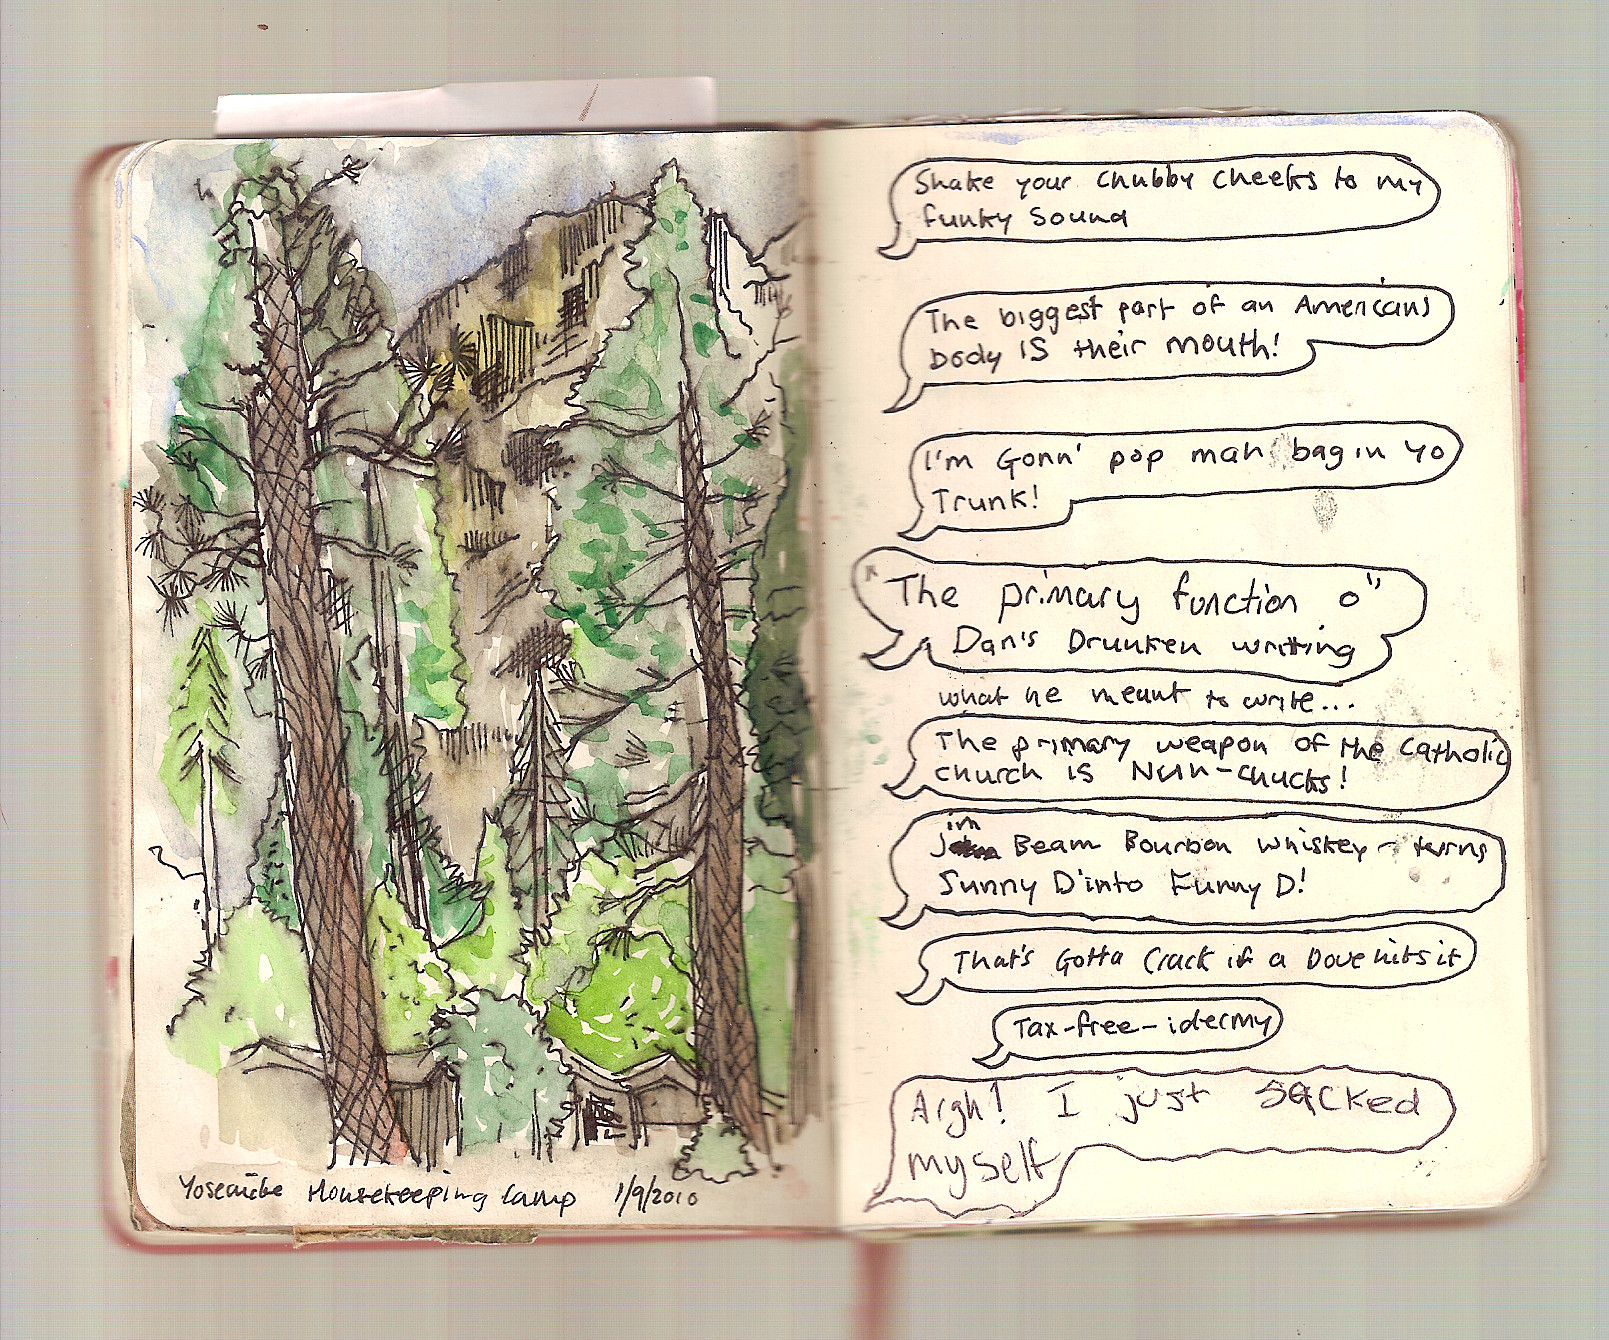 Yosemite Housekeeping Camp 1/9/2010
Shake your chubby cheeks to my
funky sound
The biggest part of an Americans
body IS their mouth!
I'm Gonn' pop mah bag in yo
Trunk!
"The primary function o"
Dan's Drunken writting
what he meant to write...
The primary weapon of the Catholic
church is Nun-chucks!
Jim Beam Bourbon whiskey - turns
Sunny D' into Funny D!
That's Gotta Crack if a Dove hits it
Tax-free-idermy
Argh! I just sacked
myself